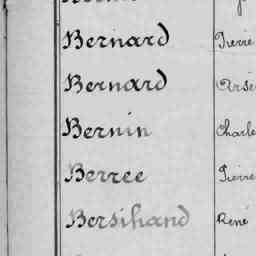 Bernard Pierre
Bernard
Bernin Charle
Berree Pierre
Bersihand René